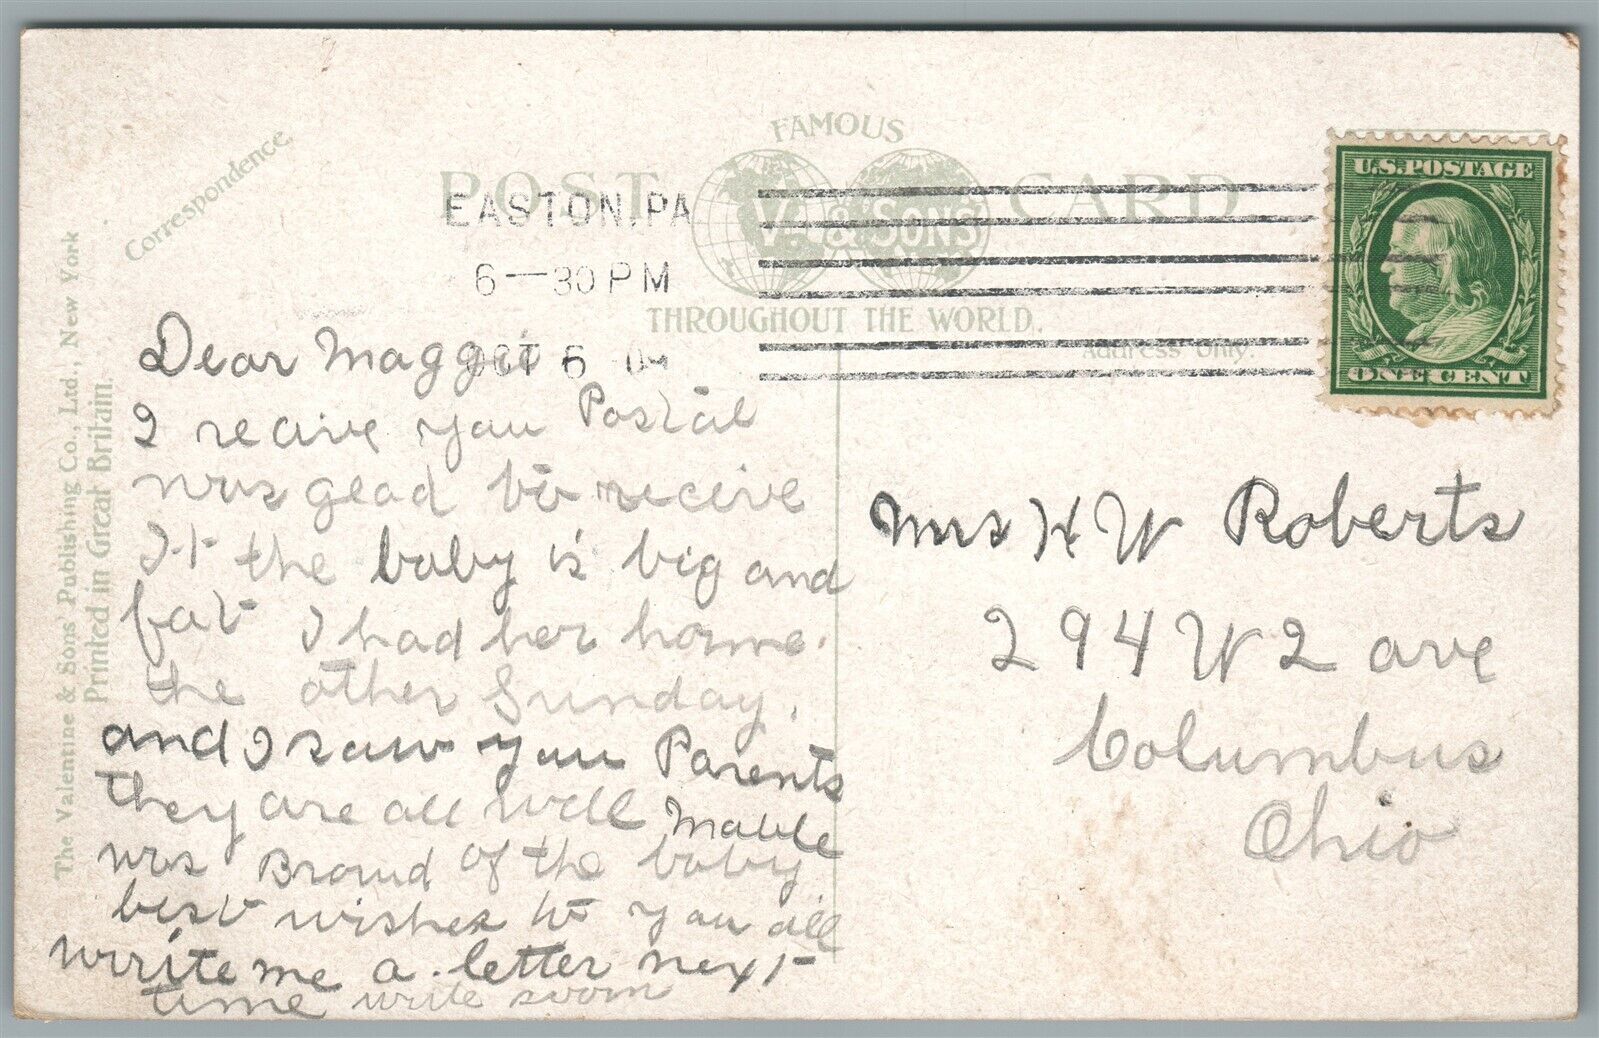 Correspondence.
FAMOUS
POST CARD
V. & SONS'
THROUGHOUT THE WORLD.
Address Only.
The Valentine & Sons' Publishing Co., Ltd., New York
Printed in Great Britain.
EASTON, PA
6—30 PM
OCT 6
U.S. POSTAGE
ONE CENT
Dear Maggie
I recive you Postal
was glad to receive
It the baby is big and
fat I had her home.
the other Sunday.
and I saw you Parents
they are all well Mable
was Broud of the baby
best wishes to you all
write me a letter next
time write soom
Mrs H W Roberts
294 W 2 ave
Columbus
Ohio